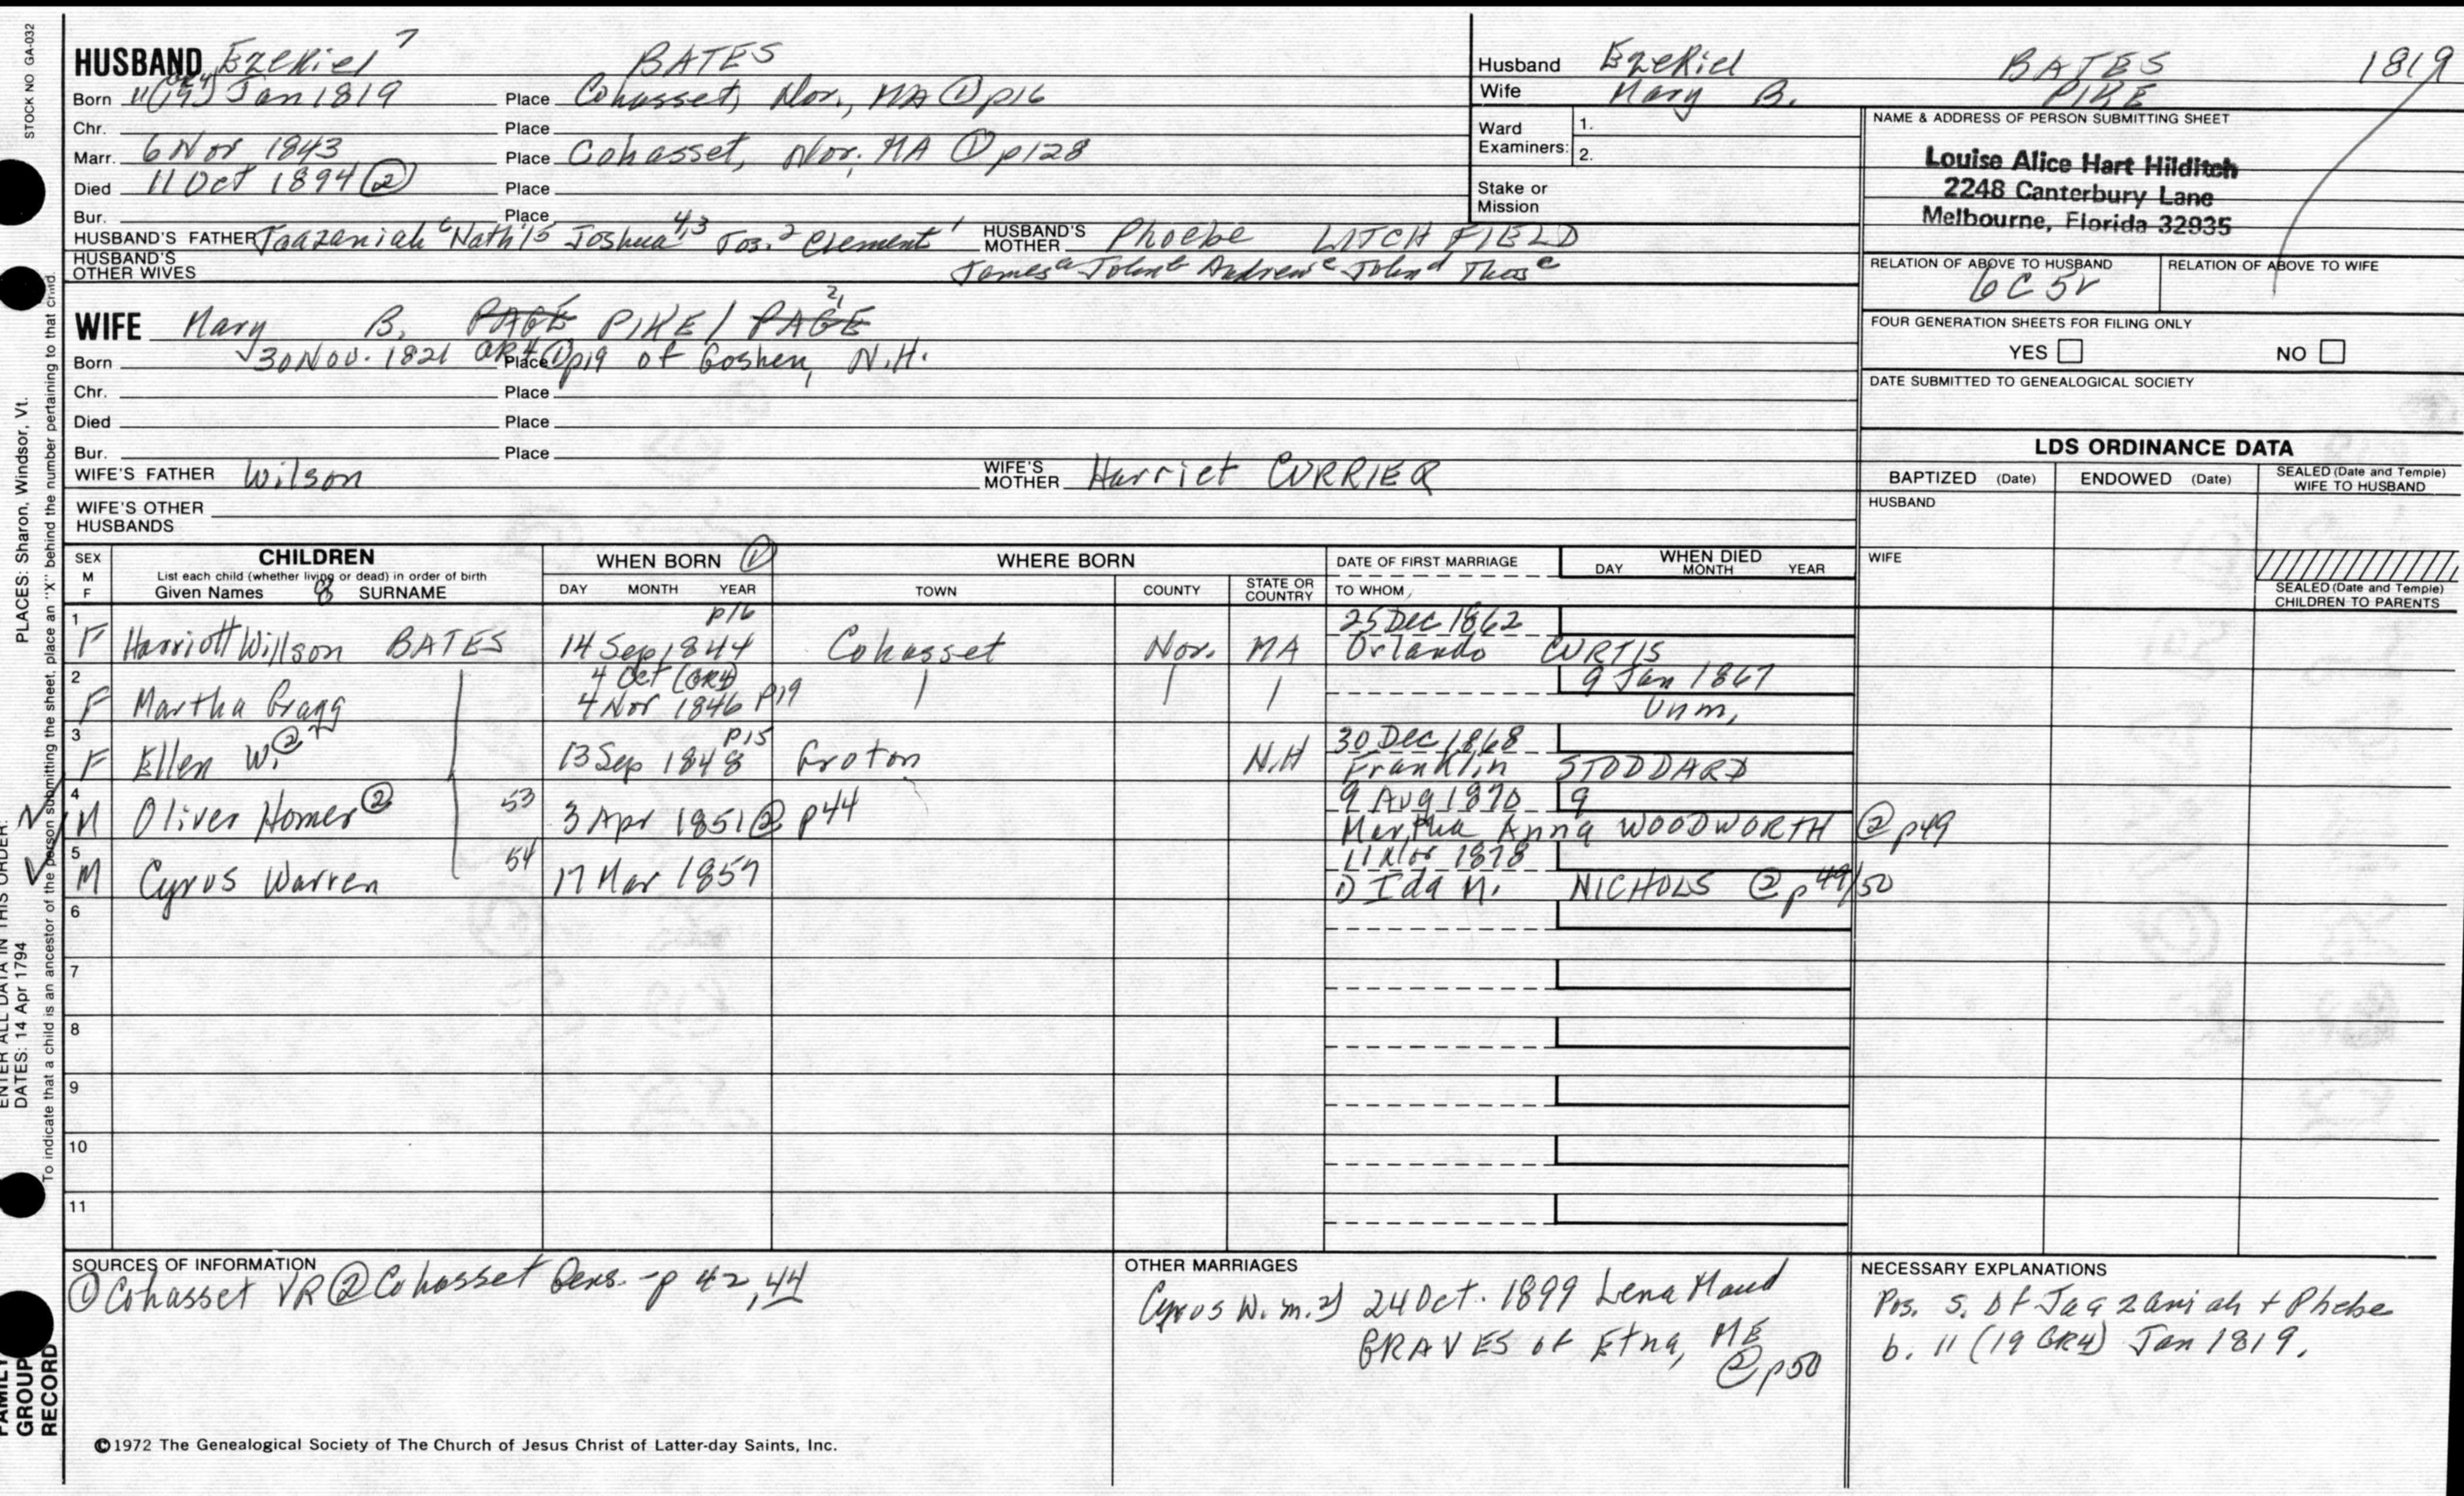 STOCK NO GA-032
HUSBAND Ezekiel 7 BATES
Born 11 (19 GR4) Jan 1819 Place Cohasset, Nor., MA ① p16
Chr. Place
Marr. 6 Nov 1843 Place Cohasset, Nor. MA ① p128
Died 11 Oct 1894 ② Place
Bur. Place
HUSBAND'S FATHER Jaazaniah 6 Nath'l 5 Joshua 4,3 Jos. 2 Clement 1 HUSBAND'S MOTHER Phoebe LITCHFIELD
HUSBAND'S OTHER WIVES James a John b Andrew c John d Thos e
WIFE Mary B. PAGE PIKE / PAGE 21
Born 30 Nov. 1821 GR4 Place ① p19 of Goshen, N.H.
Chr. Place
Died Place
Bur. Place
WIFE'S FATHER Wilson WIFE'S MOTHER Harriet CURRIER
WIFE'S OTHER HUSBANDS
Husband Ezekiel BATES 1819
Wife Mary B. PIKE
Ward Examiners: 1.
2.
Stake or Mission
NAME & ADDRESS OF PERSON SUBMITTING SHEET
Louise Alice Hart Hilditch
2248 Canterbury Lane
Melbourne, Florida 32935
RELATION OF ABOVE TO HUSBAND RELATION OF ABOVE TO WIFE
6C5r
FOUR GENERATION SHEETS FOR FILING ONLY
YES NO
DATE SUBMITTED TO GENEALOGICAL SOCIETY
LDS ORDINANCE DATA
BAPTIZED (Date) ENDOWED (Date) SEALED (Date and Temple) WIFE TO HUSBAND
HUSBAND
WIFE
SEALED (Date and Temple) CHILDREN TO PARENTS
SEX M F CHILDREN WHEN BORN ① WHERE BORN DATE OF FIRST MARRIAGE WHEN DIED
List each child (whether living or dead) in order of birth
Given Names 8 SURNAME DAY MONTH YEAR TOWN COUNTY STATE OR COUNTRY TO WHOM DAY MONTH YEAR
p16 25 Dec 1862
1 F Harriott Willson BATES 14 Sep 1844 Cohasset Nor. MA Orlando CURTIS
4 Oct (GR4) 9 Jan 1867
2 F Martha Gragg 4 Nov 1846 p19 Unm.
p15 30 Dec 1868
3 F Ellen W. ② 13 Sep 1848 Groton N.H Franklin STODDARD
9 Aug 1870 9
4 M Oliver Homer ② 53 3 Apr 1851 ② p44 Martha Anna WOODWORTH ② p49
11 Nov 1878
5 M Cyrus Warren 54 17 Mar 1857 1) Ida N. NICHOLS ② p 49/50
6
7
8
9
10
11
SOURCES OF INFORMATION
① Cohasset VR ② Cohasset Gens. - p 42, 44
OTHER MARRIAGES
Cyrus W. m. 2) 24 Oct. 1899 Lena Maud
GRAVES of Etna, ME
② p50
NECESSARY EXPLANATIONS
Pos. s. of Jaazaniah + Phebe
b. 11 (19 GR4) Jan 1819.
©1972 The Genealogical Society of The Church of Jesus Christ of Latter-day Saints, Inc.
ENTER ALL DATA IN THIS ORDER:
PLACES: Sharon, Windsor, Vt.
DATES: 14 Apr 1794
To indicate that a child is an ancestor of the person submitting the sheet, place an "X" behind the number pertaining to that child.
FAMILY GROUP RECORD